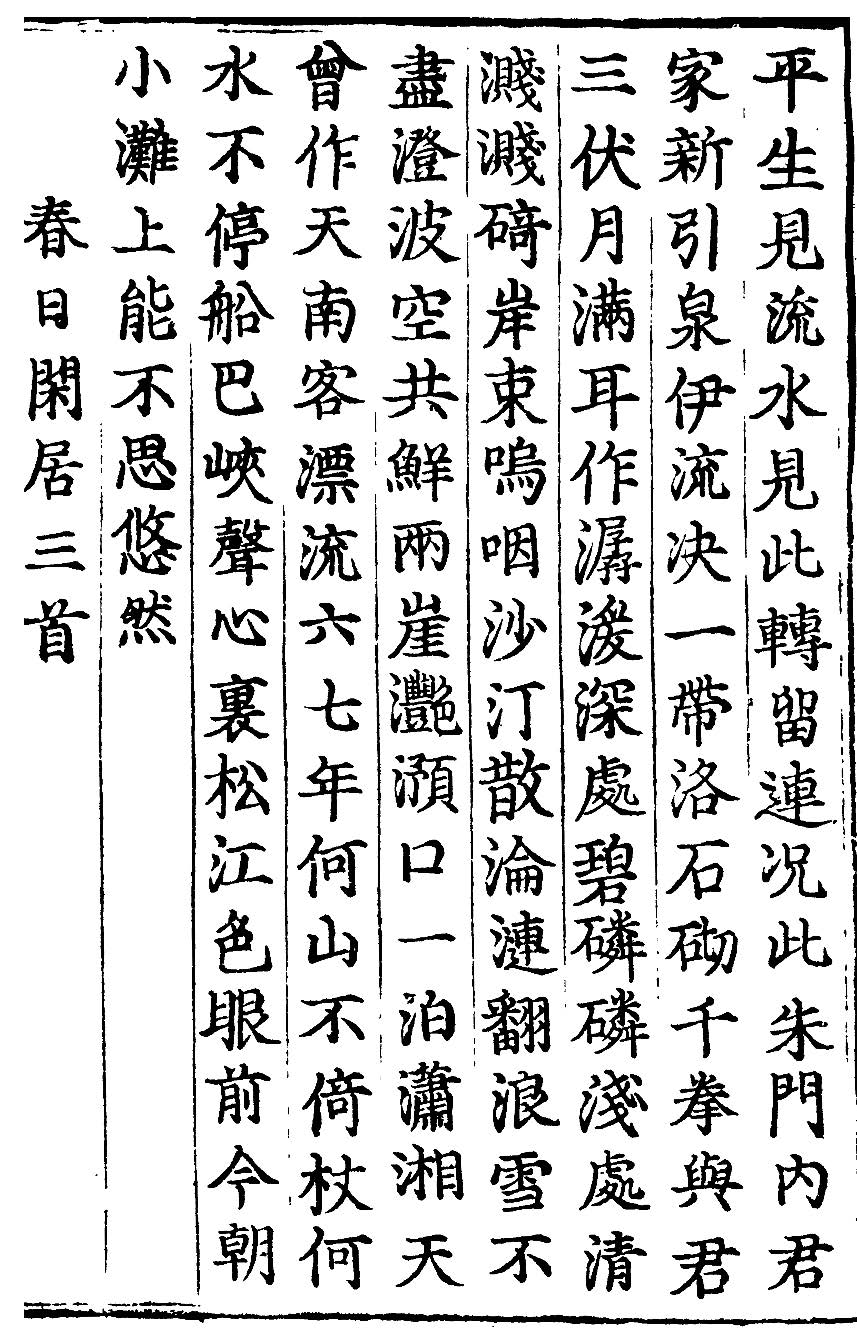 平生見流水見此轉留連况此朱門内君
家新引泉伊流决一帶洛石砌千拳與君
三伏月滿耳作潺湲深處碧磷磷淺處清
濺濺碕岸束嗚咽沙汀散淪漣翻浪雪不
盡澄波空共鮮兩崖灩澦口一泊瀟湘天
曾作天南客漂流六七年何山不倚杖何
水不停船巴峽聲心裏松江色眼前今朝
小灘上能不思悠然
春日閑居三首